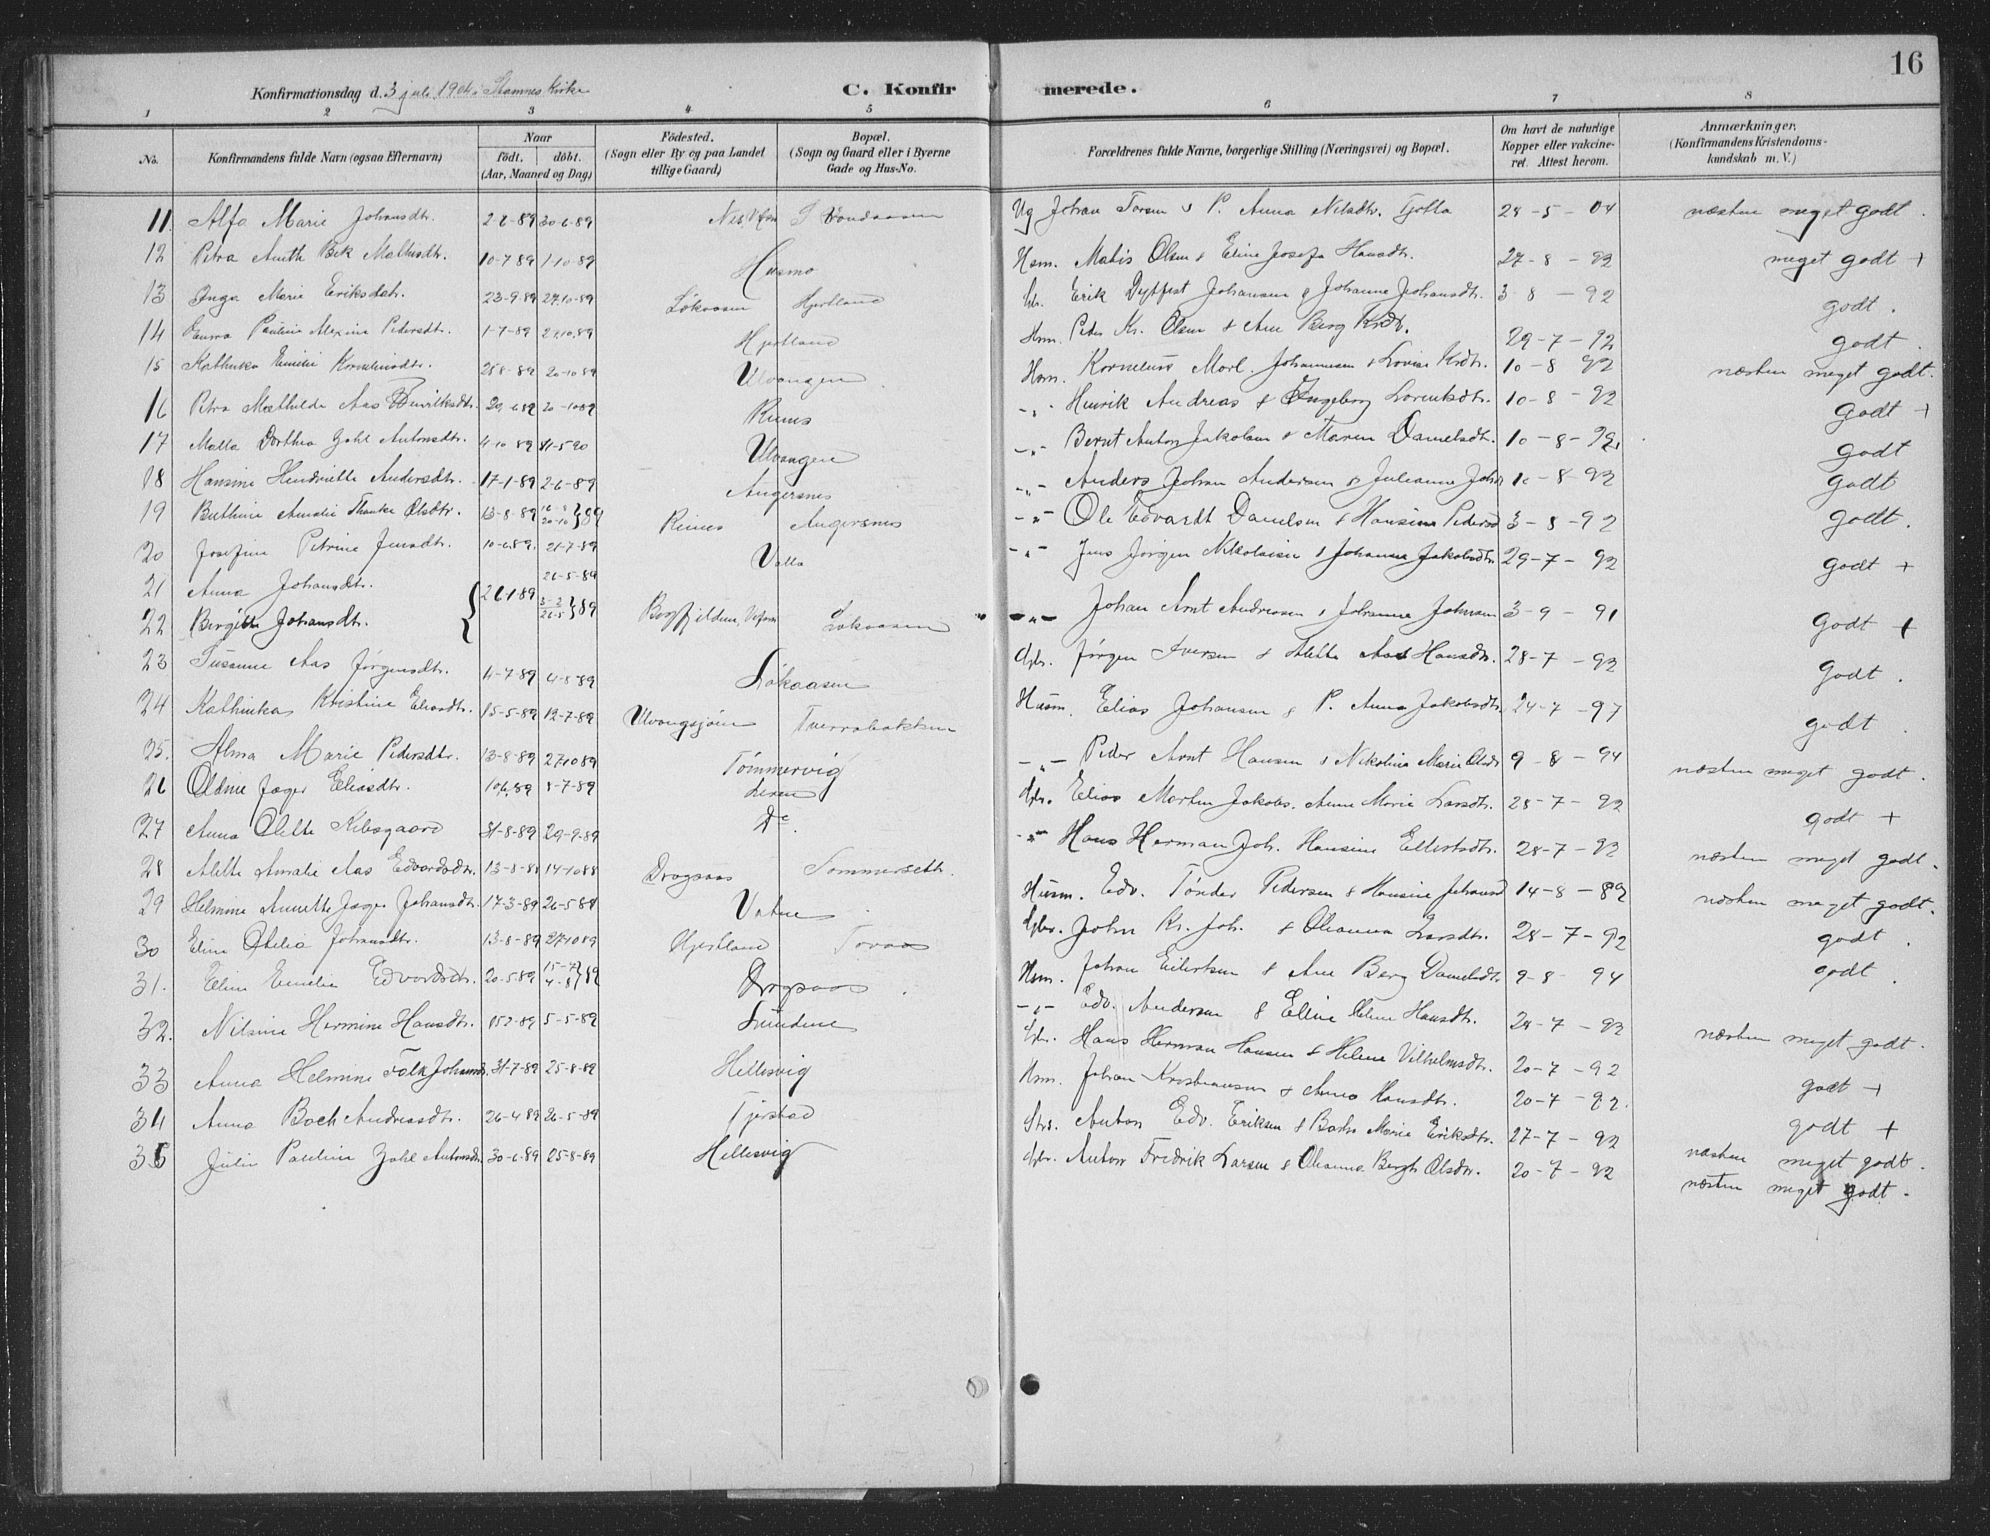 16
Konfirmationsdag d. 3 juli 1904 i Stamnes Kirke
C. Konfirmerede.
1 2 3 4 5 6 7 8
No. Konfirmandens fulde Navn (ogsaa Efternavn) Naar født, døbt. (Aar, Maaned og Dag) Fødested. (Sogn eller By og paa Landet tillige Gaard) Bopæl. (Sogn og Gaard eller i Byerne Gade og Hus-No. Forældrenes fulde Navne, borgerlige Stilling (Næringsvei) og Bopæl. Om havt de naturlige Kopper eller vaccineret. Attest herom. Anmærkninger. (Konfirmandens Kristendomskundskab m. V.)
11 Alfa Marie Johansdtr. 2-6-89 30-6-89 Ug Johan Toresen & P. Anna Nilsdtr. Tjøtta 28-5-04 næsten meget godt.
12 Petra Anette Bek Mathisdtr. 10-7 89 1-10-89 Husmo Hsm. Matis Olsen & Eline Josefa Hansdtr. 27-8-92 meget godt +
13 Inga Marie Eriksdatr. 23-9-89 27.10-89 Løkaasen Hjertland Erik Dypfest Johansen & Johanna Johansdtr. 3-8-92 godt.
14 Emma Pauline Mexine Pedersdtr. 1-7-89 27.10.89 Hjertland Hsm. Peder Kr. Olsen & Ane Berg Krdtr. 29-7-92 godt.
15 Kathinka Emilie Korneliusdtr. 25 8-89 20-10 89 Ulvangen Hsm. Kornelius Mørl. Johannesen & Lovise Krdtr. 10-8 92 næsten meget godt.
16 Petra Mathilde Aas Henriksdtr. 29-6 89 20-10 89 Reines -"- Henrik Andreas & Ingeborg Lorentsdtr. 10-8-92 godt +
17 Malla Dorthea Zahl Antonsdtr. 4-10 89 11-5-90 Ulvangen -"- Bernt Anton Jakobsen & Maren Danielsdtr. 10-8-92 godt
18 Hansine Hendriette Andersdtr. 17-1-89 2-6-89 Angersnes -"- Anders Johan Andersen & Julianne Joh 10-8-92 godt
19 Berthine Amalie Thonke Olsdtr. 13-8-89 20-10 } 89 Reines Angersnes -"- Ole Edvardt Danielsen & Hansine Peders 3-8-92 godt.
20 Josefine Petrine Jensdtr. 10-6 89. 21-7-89 Valla -"- Jens Jørgen Nikolaisen & Johanna Jakobsdtr. 29-7-92 godt +
21 Anna Johansdtr. 26-5-89
22 Birgitte Johansdtr. } 26-1 89 3-2 26-5 } 89 Bogfjeldmo, Vefsn Løkaasen -"- Johan Arnt Andreasen & Johanna Johnsen 3-9-91 godt +
23 Susanne Aas Jørgensdtr. 11-7-89 4-8 89 Løkaasen Gbr. Jørgen Iversen & Alette Aas Hansdtr. 28-7-92 godt.
24 Kathinka Kristine Eliasdtr. 15-5-89 12-7-89 Ulvangsjøen Tverrabakken Husm. Elias Johansen & P. Anna Jakobsdtr. 24-7-97 godt.
25. Alma Marie Pedersdtr. 13-8-89 27 10 89 Tømmervig -"- Peder Arnt Hansen & Nikoline Marie Olsdr 9-8-94 næsten meget godt.
26 Oldine Jæger Eliasdtr. 10.6.89 8-7-89 Leren Gbr. Elias Morten Jakobs. Anne Marie Larsdtr. 28-7-92 godt +
27 Anna Olette Kibsgaard 31-8-89 29-9-89 Do. -"- Hans Herman Joh. Hansine Eilertsdtr. 28-7-92 næsten meget godt.
28 Alette Amalie Aas Edvardsdtr. 13-8-88 14-10 88 Dragsaas Sommerseth. Husm. Edv. Tønder Pedersen & Hansine Johansd 14-8-89 næsten meget godt.
29 Helmine Annette Jæger Johansdtr. 17-3-89 26-5 89 Vatne Gbr. John Kr. Joh. & Oleanna Larsdtr. 28-7-92 godt.
30 Eline Otelia Johansdtr. 13-8-89 27 10 89 Hjertland Toraas Hsm. Johan Eilertsen & Ane Berg Danielsdtr. 9-8 94 godt.
31. Eline Emilie Edvardsdtr. 20-5 89 15-7 4-8 } 89 Dragsaas. -"- Edv. Andersen & Elline Eline Hansdtr. 28-7-92
32. Nilsine Hermine Hansdtr. 5-5-89 Lundene Gbr. Hans Herman Hansen & Helene Vilhelmsdtr. 20-7-92 næsten meget godt.
33 Anna Helmine Falk Johansd. 31-7-89 25-8-89 Hellesvig Hsm. Johan Kristiansen & Anna Hansdtr. 20-7-92. godt +
34 Anna Boch Andreasdtr. 26-4 89 26-5-89 Tjerstad Strs. Anton Edv. Eriksen & Marie Eriksdtr. 27-7-92 godt +
35 Julie Pauline Zahl Antonsd. 30-6-89 25-8-89 Hellesvig Gbr. Anton Fredrik Larsen & Oleanna Bergh Olsdtr. 20-7-92 næsten meget godt.
næsten meget godt.